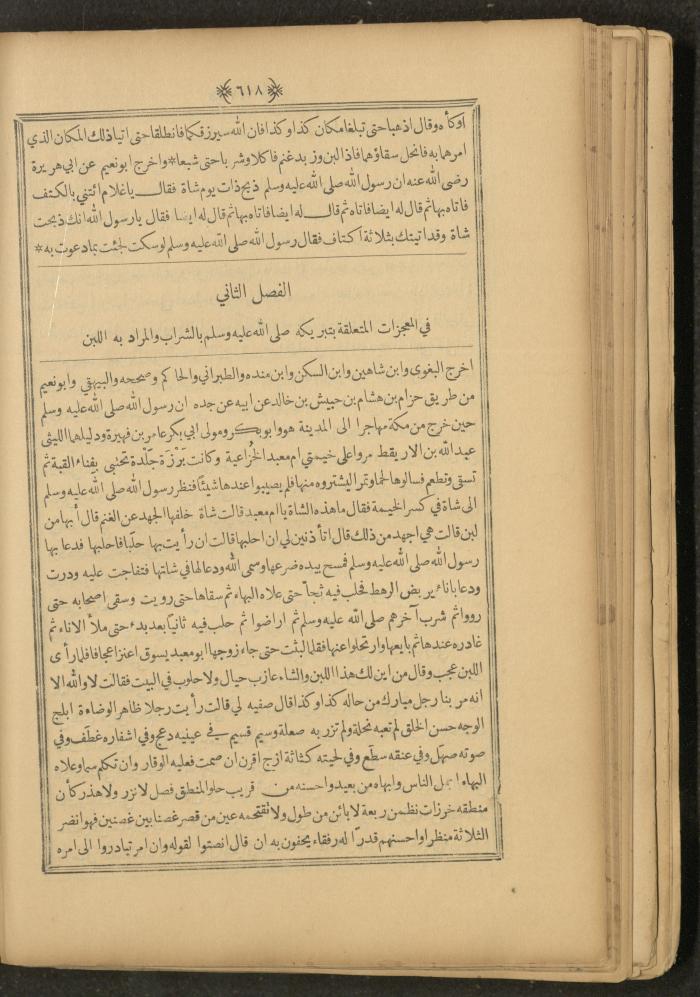 ٦١٨
اوكأه وقال اذهبا حتى تبلغا مكان كذا وكذا فان الله سيرزقكما فانطلقا حتى اتيا ذلك المكان الذي
امرهما به فانحل سقاؤهما فاذا لبن وزبد غنم فاكلا وشربا حتى شبعا * واخرج ابونعيم عن ابي هريرة
رضى الله عنه ان رسول الله صلى الله عليه وسلم ذبح ذات يوم شاة فقال ياغلام ائتني بالكتف
فاتاه بها ثم قال له ايضا فاتاه ثم قال له ايضا فاتاه بها ثم قال له ايضا فقال يا رسول الله انك ذبحت
شاة وقد اتيتك بثلاثة اكتاف فقال رسول الله صلى الله عليه وسلم لوسكت لجئت بما دعوت به *
الفصل الثاني
في المعجزات المتعلقة بتبريكه صلى الله عليه وسلم بالشراب والمراد به اللبن
اخرج البغوى وابن شاهين وابن السكن وابن منده والطبراني والحاكم وصححه والبيهقي وابونعيم
من طريق حزام بن هشام بن حبيش بن خالد عن ابيه عن جده ان رسول الله صلى الله عليه وسلم
حين خرج من مكة مهاجرا الى المدينة هو وابوبكر ومولى ابي بكر عامر بن فهيرة ودليلهما الليثى
عبد الله بن الاريقط مروا على خيمتي ام معبد الخُزاعية وكانت بَرْزَة جَلْدة تحتبى بفناء القبة ثم
تسقى وتطعم فسالوها لحما وتمرا ليشتروه منها فلم يصيبوا عندها شيئًا فنظر رسول الله صلى الله عليه وسلم
الى شاة في كسر الخيمة فقال ما هذه الشاة يا ام معبد قالت شاة خلفها الجهد عن الغنم قال أبها من
لبن قالت هي اجهد من ذلك قال اتأذنين لي ان احلبها قالت ان رأيت بها حلَبا فاحلبها فدعا بها
رسول الله صلى الله عليه وسلم فمسح بيده ضرعها وسمى الله ودعا لها في شاتها فتفاجت عليه ودرت
ودعا باناء يربض الرهط فحلب فيه ثجاً حتى علاه البهاء ثم سقاها حتى رويت وسقى اصحابه حتى
رووا ثم شرب آخرهم صلى الله عليه وسلم ثم اراضوا ثم حلب فيه ثانياً بعد بدء حتى ملأ الاناء ثم
غادره عندها ثم بايعها وارتحلوا عنها فقلما لبثت حتى جاء زوجها ابو معبد يسوق اعنزا عجافا فلما رأى
اللبن عجب وقال من اين لك هذا اللبن والشاء عازب حيال ولا حلوب في البيت فقالت لا والله الا
انه مر بنا رجل مبارك من حاله كذا وكذا قال صفيه لي قالت رأيت رجلا ظاهر الوضاءة ابلج
الوجه حسن الخلق لم تعبه نحلة ولم تزر به صعلة وسيم قسيم في عينيه دعج وفي اشفاره غطَف وفي
صوته صهَل وفي عنقه سطَع وفي لحيته كثاثة ازج اقرن ان صمت فعليه الوقار وان تكلم سما وعلاه
البهاء اجمل الناس وابهاه من بعيد واحسنه من قريب حلو المنطق فصل لا نزر ولا هذر كأن
منطقه خرزات نظمن ربعة لا بائن من طول ولا تقتحمه عين من قصر غصنا بين غصنين فهو انضر
الثلاثة منظرا واحسنهم قدرًا له رفقاء يحفون به ان قال انصتوا لقوله وان امر تبادروا الى امره